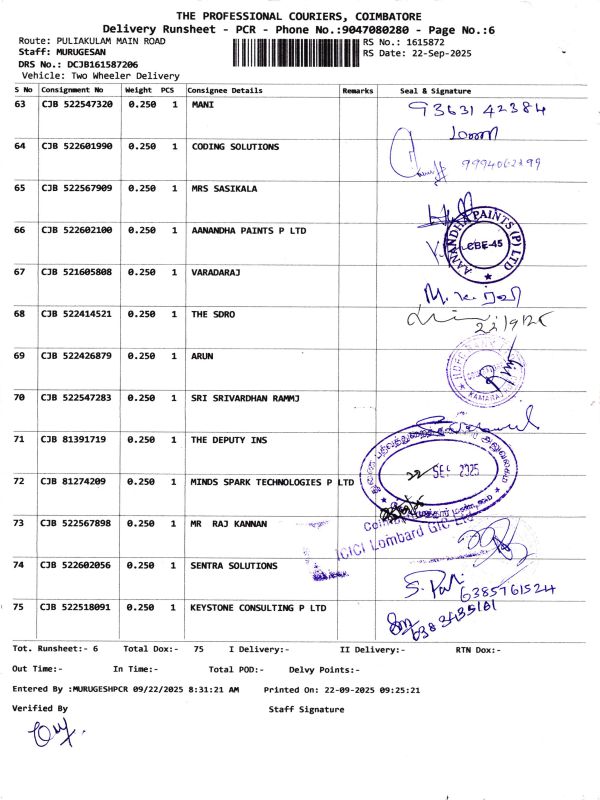 THE PROFESSIONAL COURIERS, COIMBATORE
Delivery Runsheet - PCR - Phone No.:9047080280 - Page No.:6
Route: PULIAKULAM MAIN ROAD RS No.: 1615872
Staff: MURUGESAN RS Date: 22-Sep-2025
DRS No.: DCJB161587206
Vehicle: Two Wheeler Delivery
S No Consignment No Weight PCS Consignee Details Remarks Seal & Signature
63 CJB 522547320 0.250 1 MANI 9363142384
64 CJB 522601990 0.250 1 CODING SOLUTIONS
65 CJB 522567909 0.250 1 MRS SASIKALA
66 CJB 522602100 0.250 1 AANANDHA PAINTS P LTD AANANDHA PAINTS (P) LTD CBE-45
67 CJB 521605808 0.250 1 VARADARAJ
68 CJB 522414521 0.250 1 THE SDRO 22/9/25
69 CJB 522426879 0.250 1 ARUN
70 CJB 522547283 0.250 1 SRI SRIVARDHAN RAMMJ
71 CJB 81391719 0.250 1 THE DEPUTY INS 22 SEP 2025
72 CJB 81274209 0.250 1 MINDS SPARK TECHNOLOGIES P LTD
73 CJB 522567898 0.250 1 MR RAJ KANNAN ICICI Lombard GIC Ltd
74 CJB 522602056 0.250 1 SENTRA SOLUTIONS 6385761524
75 CJB 522518091 0.250 1 KEYSTONE CONSULTING P LTD
Tot. Runsheet:- 6 Total Dox:- 75 I Delivery:- II Delivery:- RTN Dox:-
Out Time:- In Time:- Total POD:- Delvy Points:-
Entered By :MURUGESHPCR 09/22/2025 8:31:21 AM Printed On: 22-09-2025 09:25:21
Verified By Staff Signature